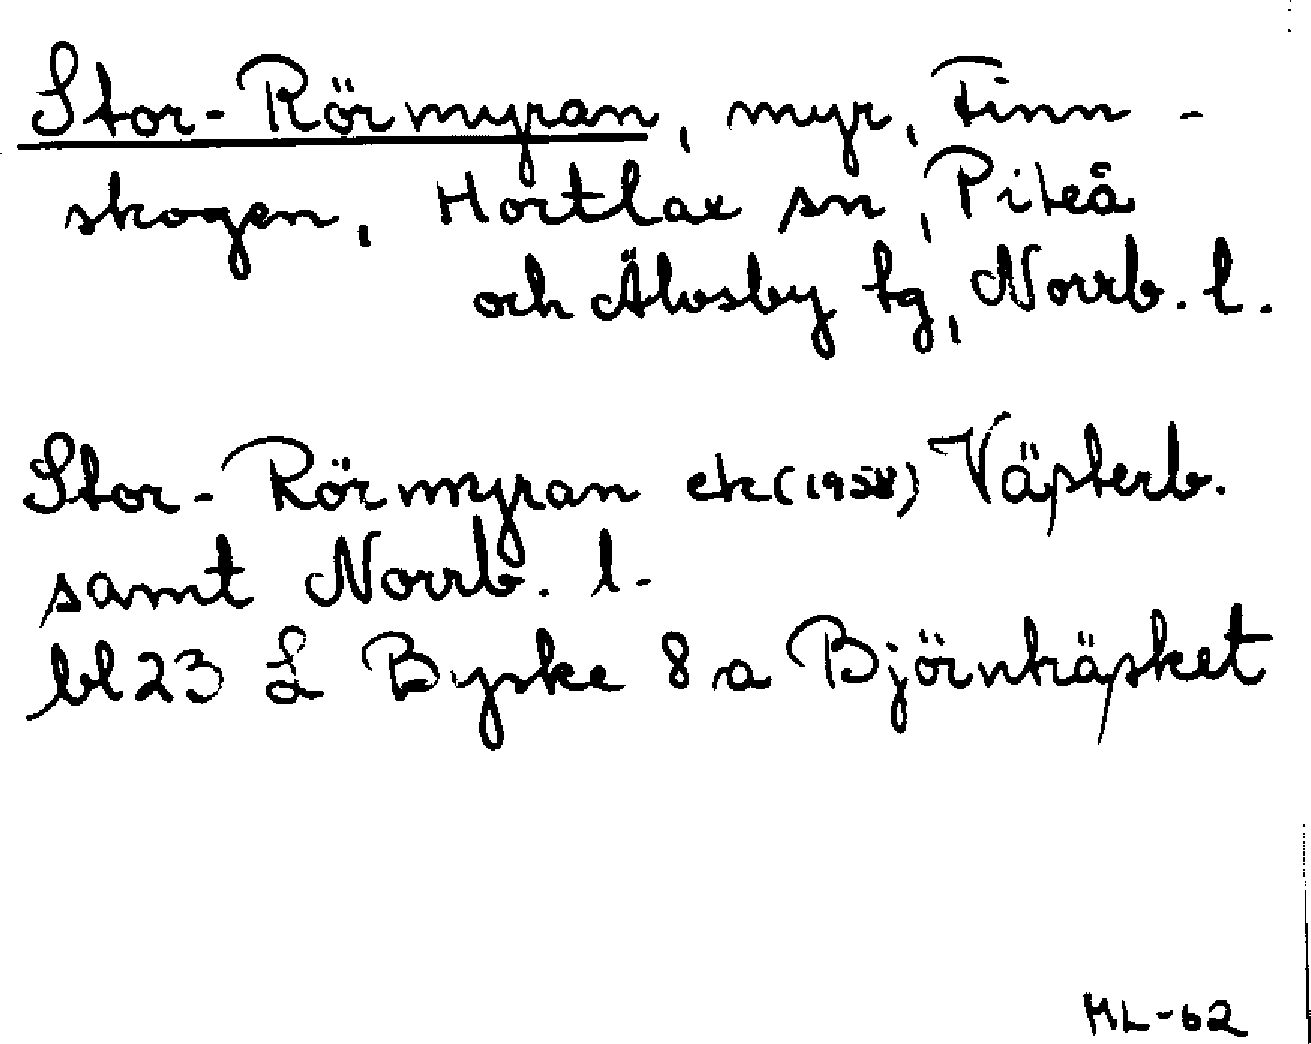 Stor-Rörmyran, myr, Finn-
skogen, Hortlax sn, Piteå
och Älvsby tg, Norrb. l.
Stor-Rörmyran ek (1958) Västerb.
samt Norrb. l.
bl 23 L Byske 8 a Björnträsket
ML-62